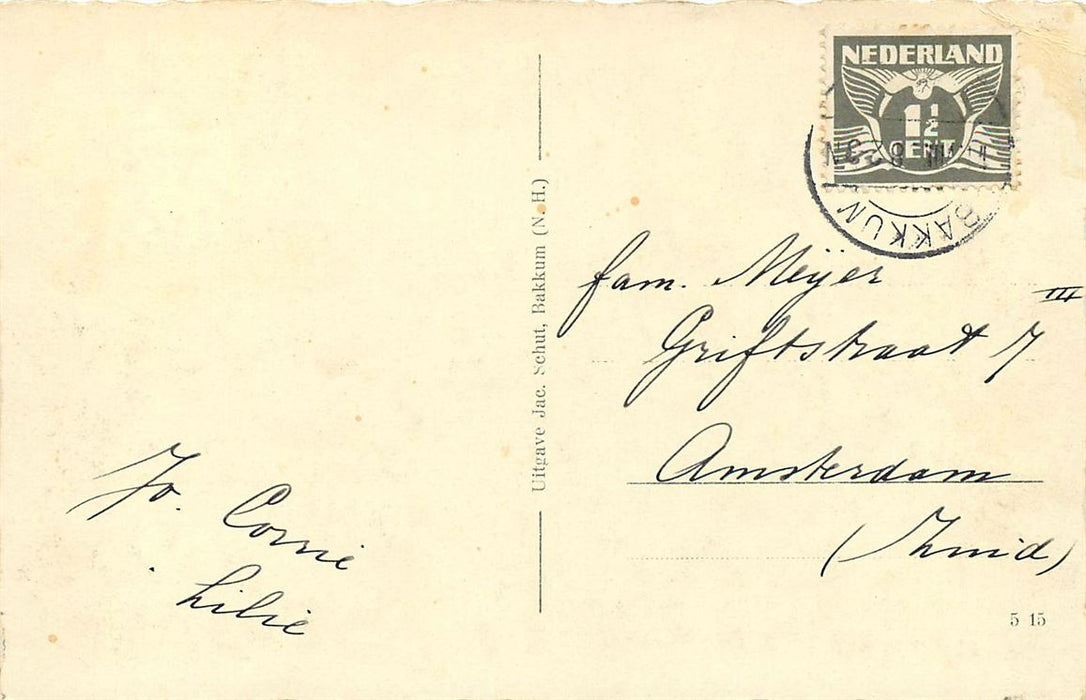 NEDERLAND
1½
CENT
BAKKUM
Uitgave Jac. Schut, Bakkum (N. H.)
fam. Meijer
Griftstraat 7 III
Amsterdam
(Zuid)
Jo. Corrie
Lilie
5 15